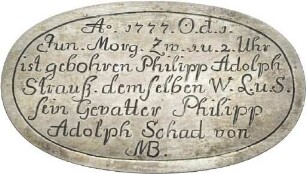 Aº. 1777. O. d. 1.
Jun. Morg. Zw. 1. u. 2. Uhr
ist gebohren Philipp Adolph
Strauß. demselben W. L. u. S.
sein Gevatter Philipp
Adolph Schad von
MB.